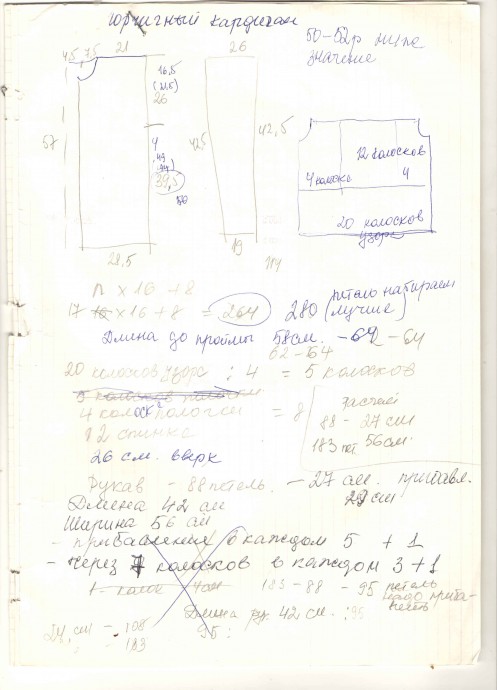 горчичный кардиган
50-52р ниже
значение
4,5 , 7,5 21
26
16,5
(21,5)
26
57
42,5
42,5
4
39,5
28,5
19
12 колосков
4 колоска
4
20 колосков
узора
n x 16 + 8
17 x 16 + 8 = 264 280 (петель набираем
лучше)
Длина до проймы 58 см. - 62 - 64
62-64
20 колосков узора : 4 = 5 колосков
4 колоск полочки = 8
12 спинка
26 см. вверх
88 - 27 см
183 пет 56 см.
Рукав - 88 петель. - 27 см. прибавл.
Длина 42 см
Ширина 56 см
- прибавление в каждом 5 + 1
- через 7 колосков в каждом 3 + 1
183 - 88 - 95 петель
надо приба-
вить
Длина рук. 42 см. : 95
- 108
- 183
95 :